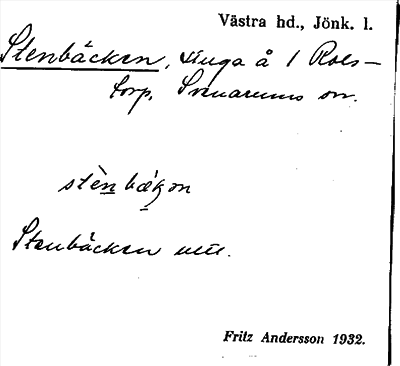 Västra hd., Jönk. l.
Stenbäcken, länga å 1 Rols-
torp, Svenarums sn.
stè̱n bǽkon
Stenbäcken
Fritz Andersson 1932.